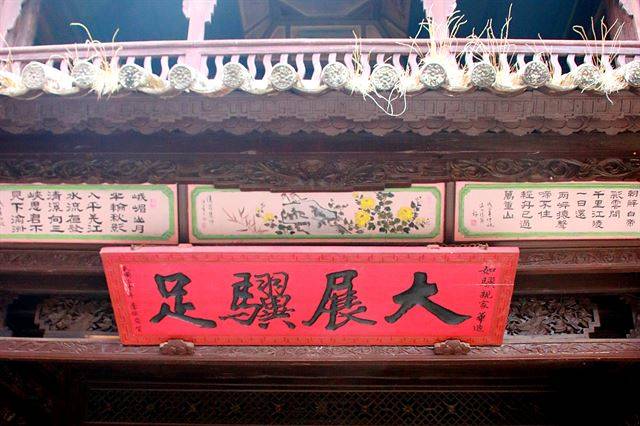 朝辭白帝
彩雲間
千里江陵
一日還
兩岸猿聲
啼不住
輕舟已過
萬重山
峨嵋山月
半輪秋影
入平羌江
水流夜發
清溪向三
峽思君不
見下渝州
大展驥足